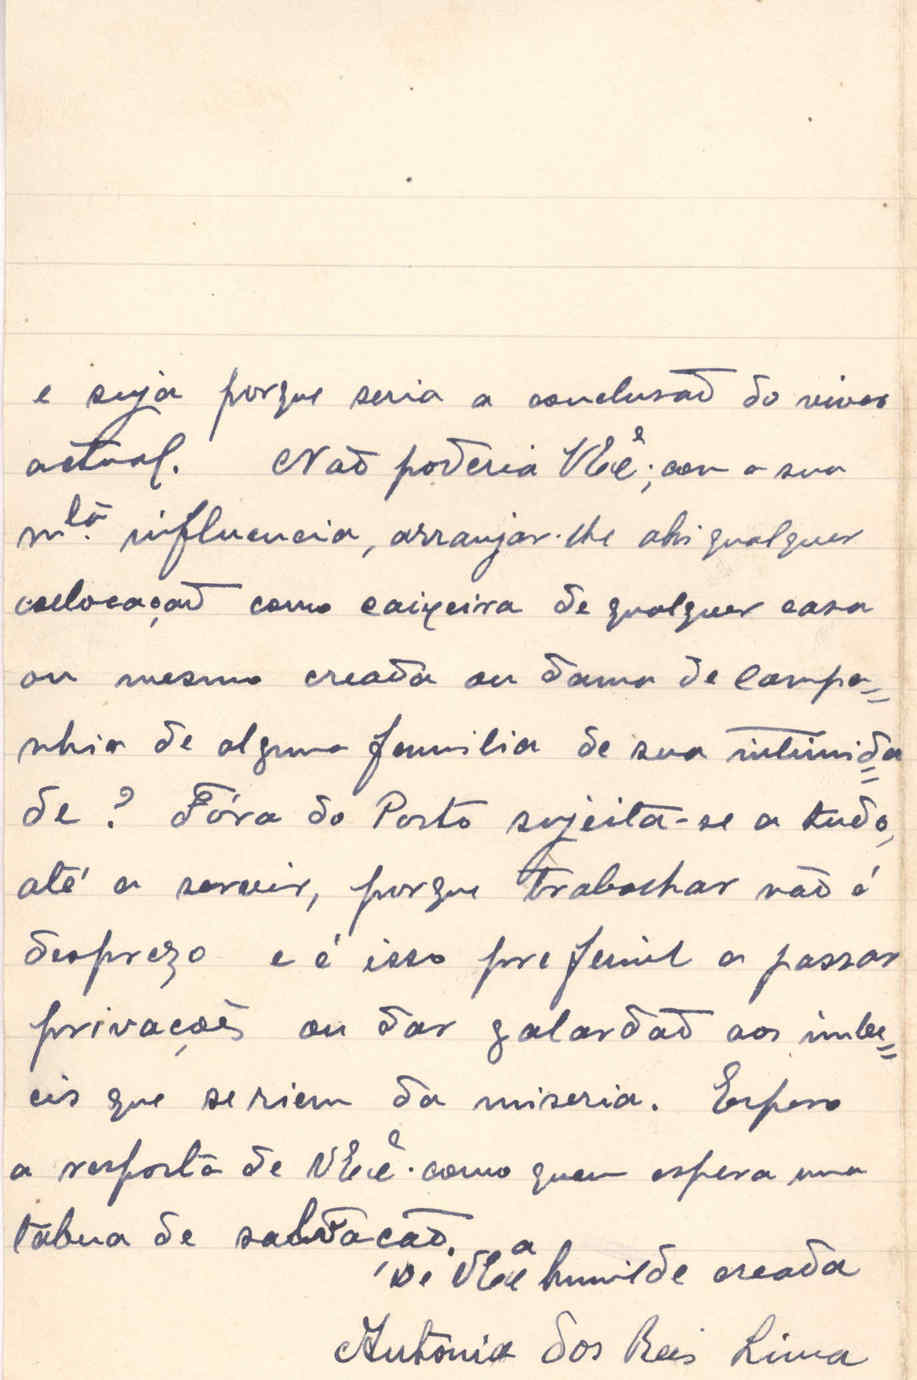 e suja porque seria a conclusaõ do viver
actual. Naõ poderia VExª; com a sua
mtª. influencia, arranjar-lhe ahi qualquer
collocaçaõ como caixeira de qualquer casa
ou mesmo creada ou dama de compa=
nhia de alguma familia de sua intimida=
de? Fóra do Porto sujeita-se a tudo,
até a servir, porque trabalhar não é
desprezo e é isso preferivel a passar
privações ou dar galardaõ aos imbe=
cis que se riem da miseria. Espero
a resposta de VExª. como quem espera uma
tábua de salvação.
De VExª humilde creada
Antónia dos Reis Lima